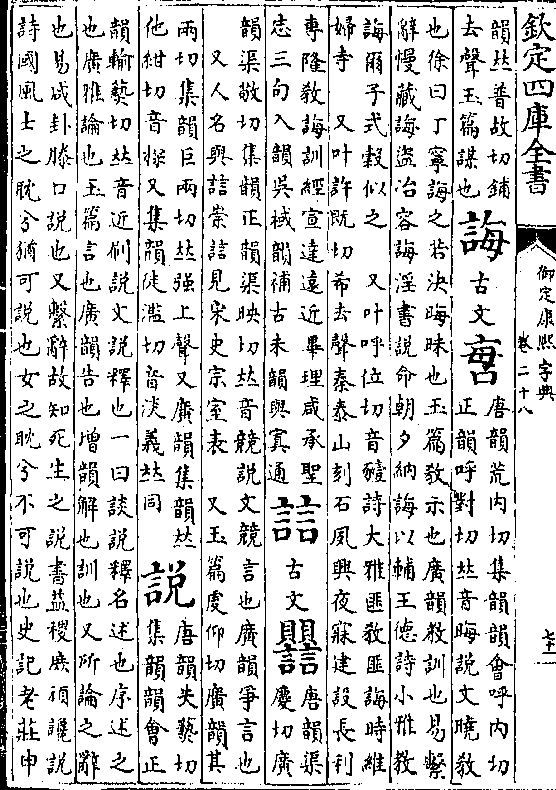 欽定四庫全書
御定康熙字典
卷二十八
韻𠀤普故切鋪
去聲玉篇謀也
誨古文
唐韻荒内切集韻韻會呼内切
正韻呼對切𠀤音晦説文曉教
也徐曰丁寧誨之若決晦昧也玉篇教示也廣韻教訓也易繫
辭慢藏誨盜冶容誨淫書説命朝夕納誨以輔王德詩小雅教
誨爾子式穀似之　又叶呼位切音詩大雅匪教匪誨時維
婦寺　又叶許既切希去聲秦泰山刻石夙興夜寐建設長利
專隆教誨訓經宣達遠近畢理咸承聖
志三句入韻吳棫韻補古未韻與寘通
誩古文
唐韻渠
慶切廣
韻渠敬切集韻正韻渠映切𠀤音競説文競言也廣韻爭言也
又人名興誩崇誩見宋史宗室表　又玉篇虔仰切廣韻其
兩切集韻巨兩切𠀤强上聲又廣韻集韻𠀤
他紺切音㮇又集韻徒濫切音淡義𠀤同
説
唐韻失爇切
集韻韻會正
韻輸爇切𠀤音近刷説文説釋也一曰談説釋名述也序述之
也廣雅論也玉篇言也廣韻告也增韻解也訓也又所論之辭
也易咸卦滕口説也又繫辭故知死生之説書益稷庶頑讒説
詩國風士之耽兮猶可説也女之耽兮不可説也史記老莊申